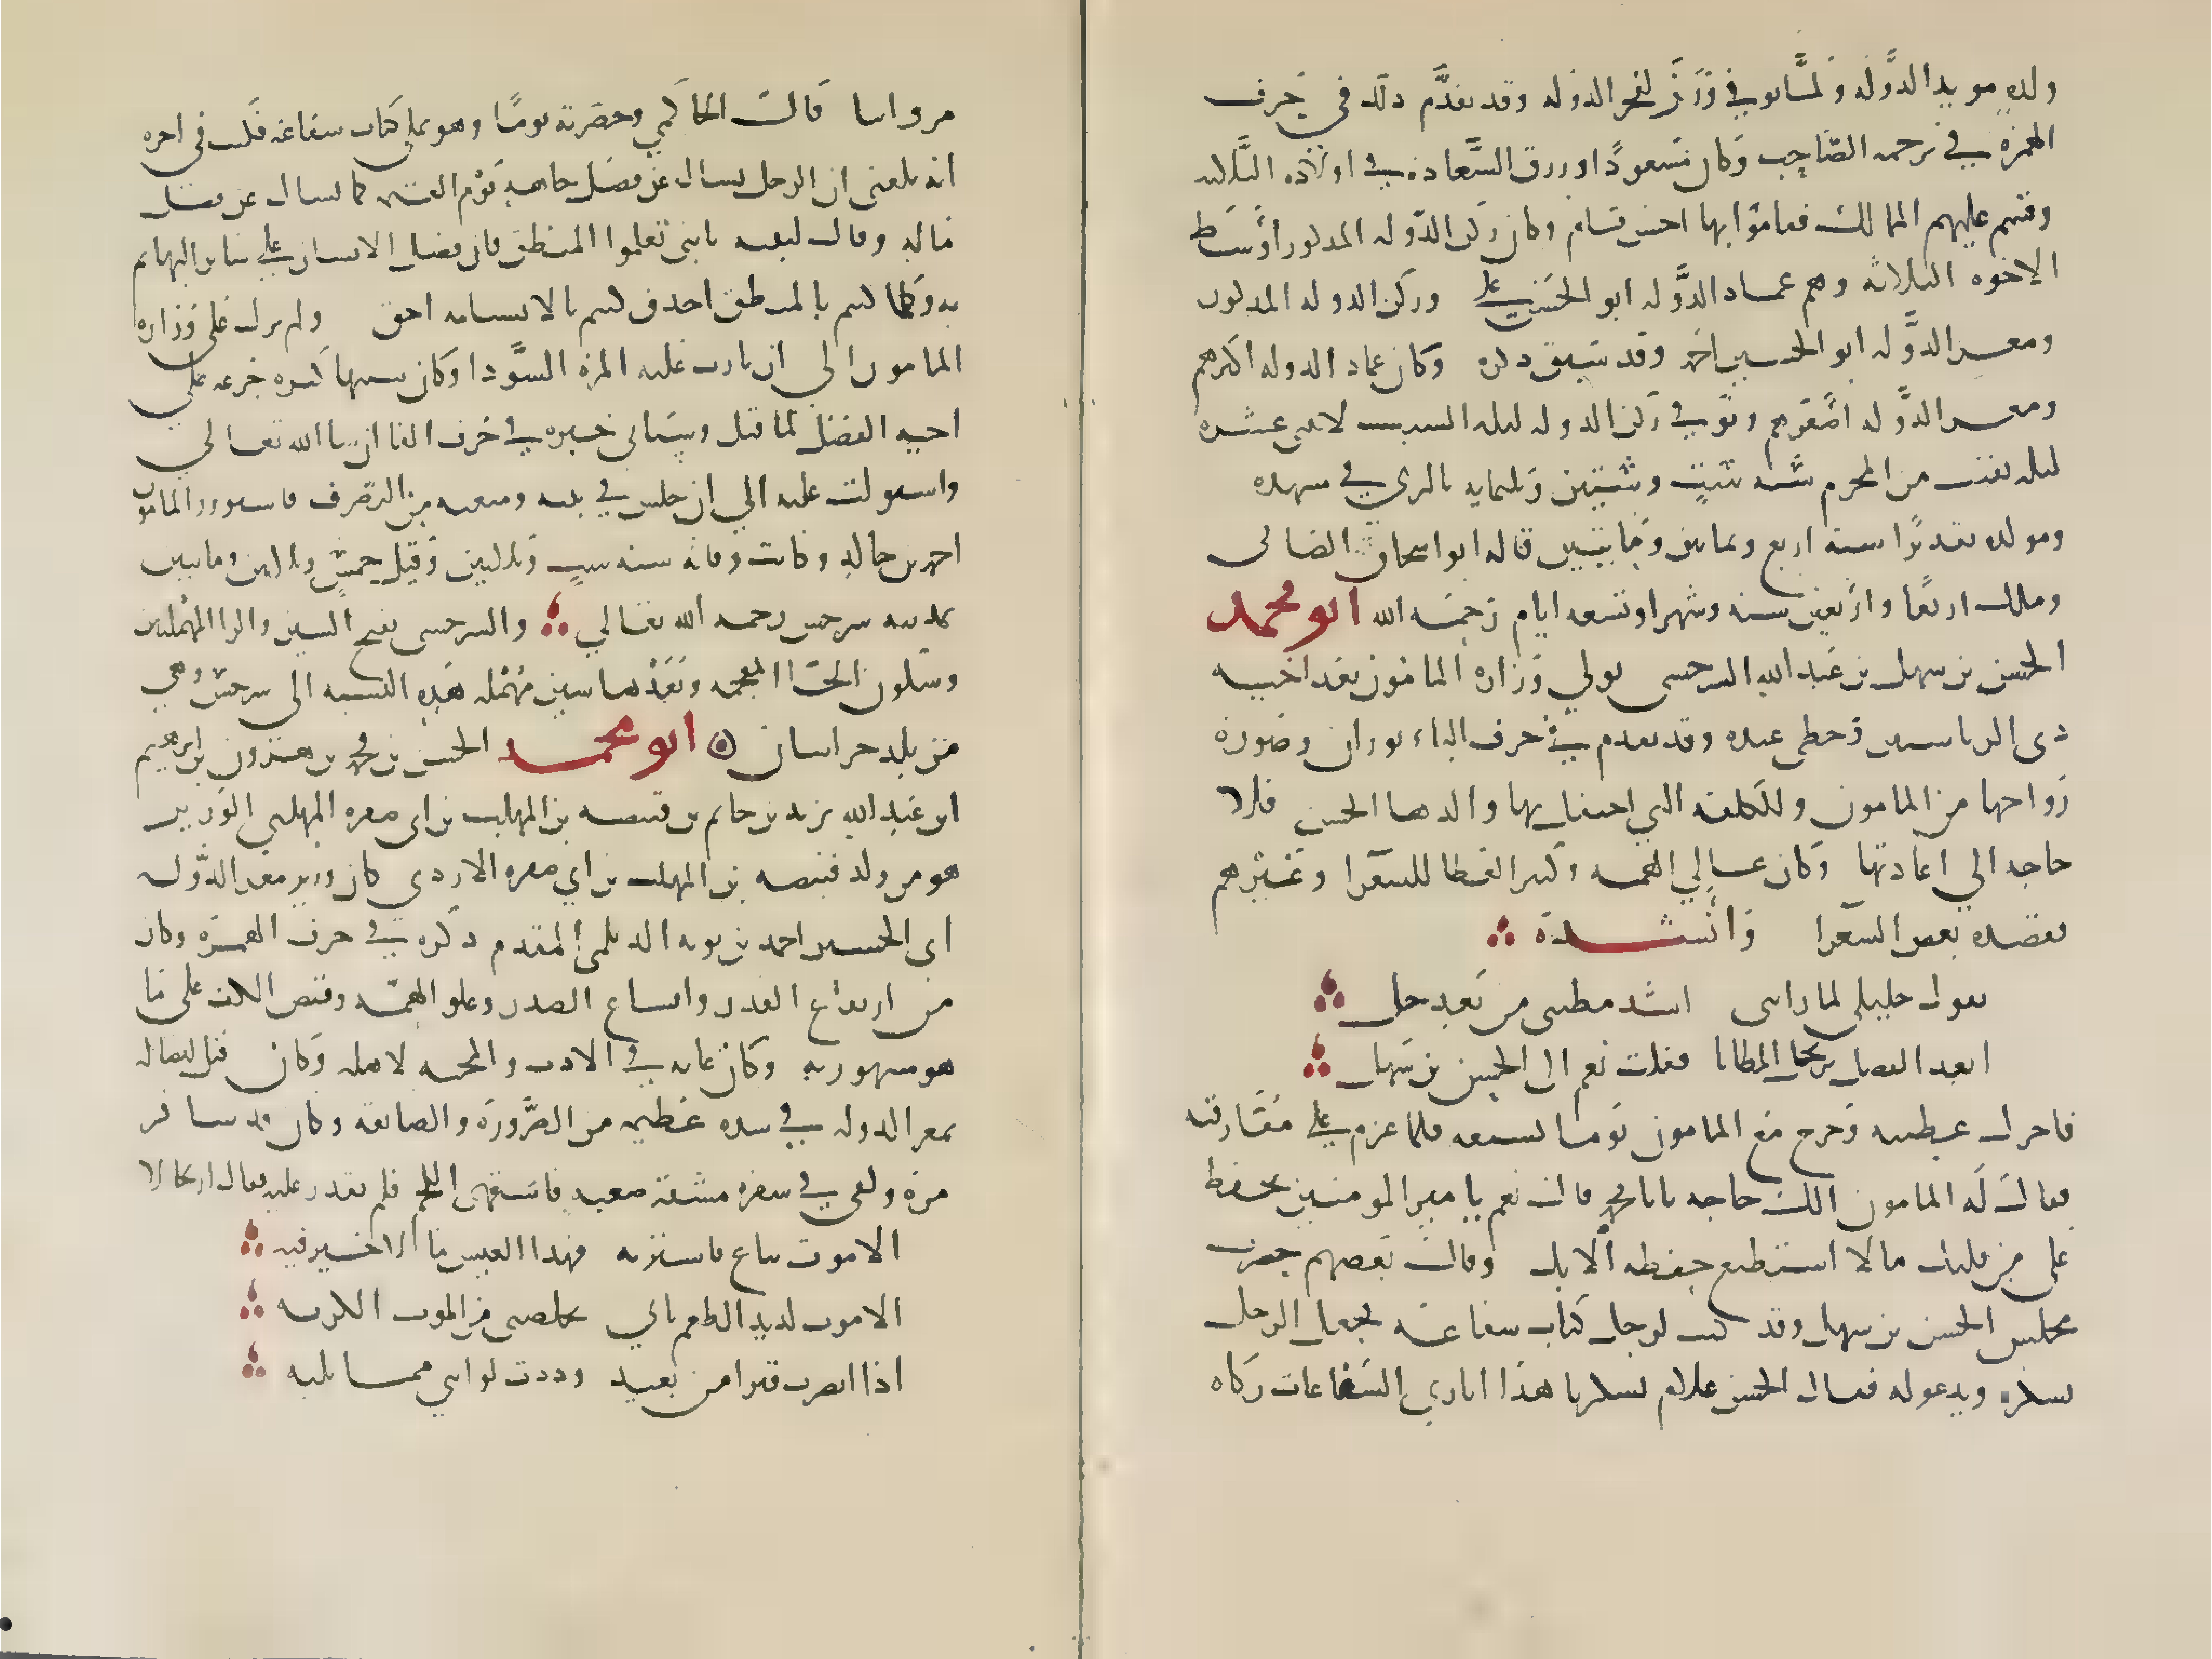 ولده مويد الدولة ولما توفي وزر لفخر الدوله وقد تقدم ذلك في حرف
الهمزة في ترجمه الصاحب وكان مسعودا ورزق السعادة في اولاده الثلاثه
وقسم عليهم الممالك فقاموا بها احسن قيام وكان ركن الدوله المذكور اوسط
الاخوه الثلاثة وهم عماد الدوله ابو الحسن علي وركن الدوله المذكور
ومعز الدوله ابو الحسين احمد وقد سبق ذكره وكان عماد الدوله اكبرهم
ومعز الدوله اصغرهم وتوفي ركن الدوله ليله السبت لاثنتي عشره
ليله بقيت من المحرم سنه ست وستين وثلثمايه بالري في مشهده
ومولده تقديرا سنة اربع وثمانين ومايتين قاله ابو اسحاق الصابي
وملك اربعا واربعين سنه وشهرا وتسعه ايام رحمه الله ابو محمد
الحسن بن سهل بن عبد الله السرخسي تولي وزارة المامون بعد اخيه
ذي الرياستين وحظي عنده وقد تقدم في حرف الباء بوران وصورة
زواجها من المامون والكلفه التي احتفل بها والدها الحسن فلا
حاجه الي اعادتها وكان عالي الهمه وكثير العطا للشعرا وغيرهم
فقصده بعض الشعرا وانشده
يقول خليلي لما راني اشد مطيتي من بعد حل
ابعد الفضل ترتحل المطايا فقلت نعم الي الحسن بن سهل
فاجزل عطيته وخرج مع المامون يوما يشيعه فلما عزم علي مفارقته
فقال له المامون الك حاجه يابا محمد قال نعم يا امير المومنين تحفظ
علي من قلبك مالا استطيع حفظه الا بك وقال بعضهم حضرت
مجلس الحسن بن سهل وقد كتب لرجل كتاب شفاعه فجعل الرجل
يشكره ويدعو له فقال الحسن علام تشكرنا هذا انا نري الشفاعات زكاه
مرواتنا قال الحاكي وحضرته يوما وهو يملي كتاب شفاعه فكتب في اخره
انه بلغني ان الرجل يسال عن فضل جاهه يوم القيمه كما يسال عن فضل
ماله وقال لبنيه يا بني تعلموا المنطق فان فضل الانسان علي ساير البهايم
به وكلما كنتم بالمنطق احذق كنتم بالانسانيه احق ولم يزل علي وزارة
المامون الي ان ثارت عليه المرة السودا وكان سببها كثره جزعه علي
اخيه الفضل لما قتل وسياتي خبره في حرف الفا ان شا الله تعالي
واستولت عليه الي ان حبس في بيته ومنعته من التصرف فاستوزر المامون
احمد بن ابي خالد وكانت وفاته سنه ست وثلثين وقيل خمس وثلاثين ومايتين
بمدينه سرخس رحمه الله تعالي والسرخسي بفتح السين والرا المهملتين
وسكون الخا المعجمه وبعدها سين مهمله هذه النسبه الي سرخس وهي
من بلاد خراسان ابو محمد الحسن بن محمد بن هرون بن ابرهيم
ابن عبد الله بن يزيد بن حاتم بن قبيصه بن المهلب بن ابي صفره المهلبي الوزير
هو من ولد قبيصه بن المهلب بن ابي صفره الازدي كان وزير معز الدوله
ابي الحسين احمد بن بويه الديلمي المقدم ذكره في حرف الهمزه وكان
من ارتفاع القدر واتساع الصدر وعلو الهمه وقبض الكف علي ما
هو مشهور به وكان غايه في الادب والمحبه لاهله وكان قبل اتصاله
بمعز الدوله في شده عظيمه من الضرورة والضايقه وكان قد سافر
مرة ولقي في سفره مشقة صعبه فاشتهي اللحم فلم يقدر عليه فقال ارتجالا
الا موت يباع فاشتريه فهذا العيش ما لا خير فيه
الا موت لذيذ الطعم ياتي يخلصني من الموت الكريه
اذا ابصرت قبرا من بعيد وددت لو انني مما يليه